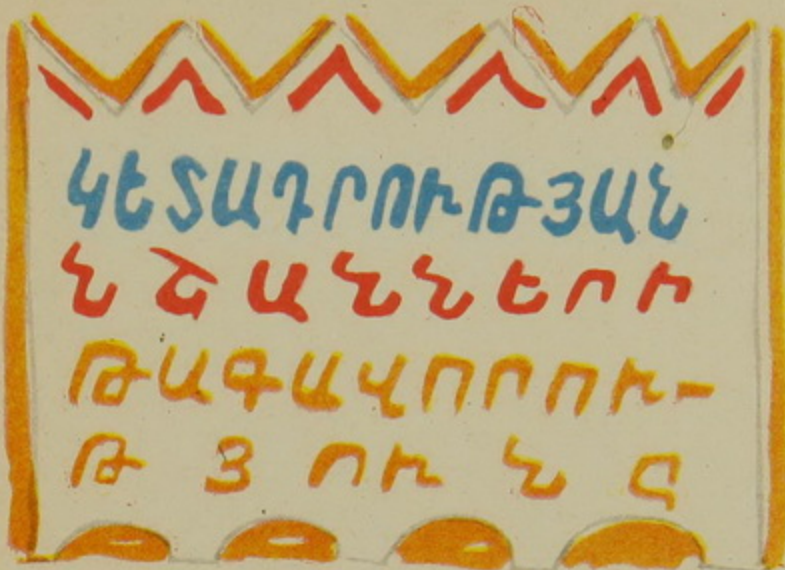 ԿԵՏԱԴՐՈՒԹՅԱՆ
ՆՇԱՆՆԵՐԻ
ԹԱԳԱՎՈՐՈՒ-
ԹՅՈՒՆԸ